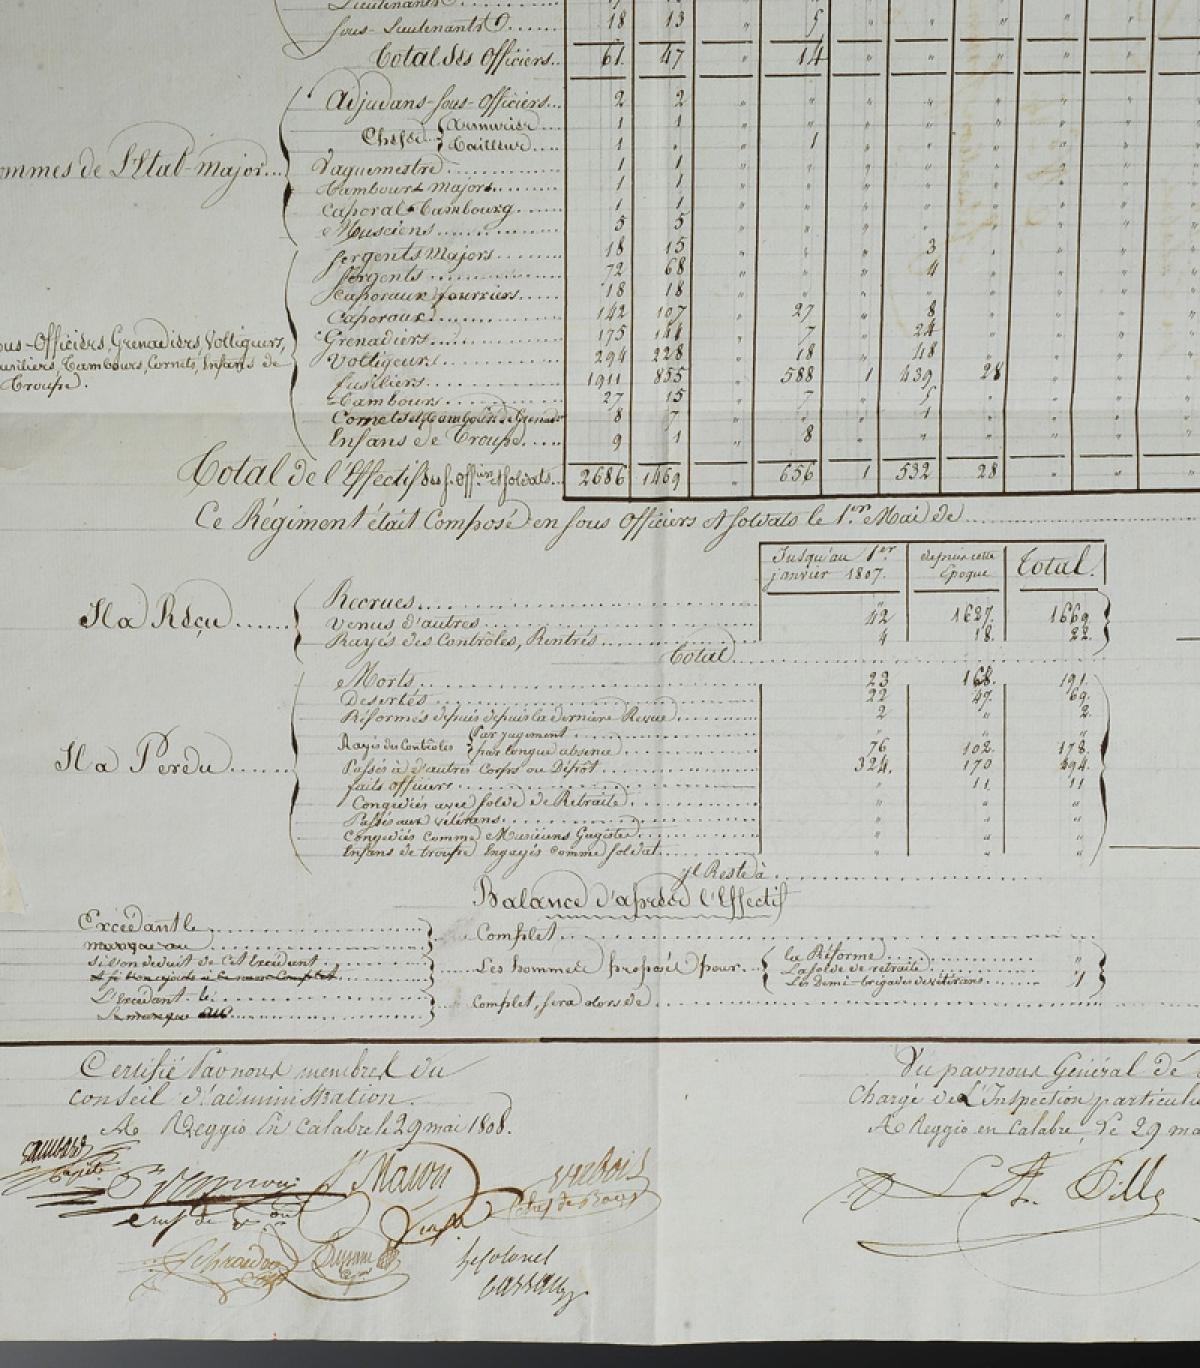 Sous-Lieutenants 18 13 " 5 " " " " " "
Total des Officiers 61. 47 " 14 " " " " " "
Adjudans-sous-Officiers 2 2 " " " " " " " "
Armurier 1 1 " " " " " " " "
Tailleur 1 " " 1 " " " " " "
ommes de L'Etat-major Vaguemestre 1 1 " " " " " " " "
Tambours Majors 1 1 " " " " " " " "
Caporal Tambourg 1 1 " " " " " " " "
Musciens 5 5 " " " " " " " "
Sergents Majors 18 15 " " " 3 " " " "
Sergents 72 68 " " " 4 " " " "
Caporaux fourriers 18 18 " " " " " " " "
Caporaux 142 107 " 27 " 8 " " " "
Grenadiers 175 " 7 " 24 " " " "
ous-Officiers, Grenadiers, Voltigeurs, Voltigeurs 294 228 " 18 " 48 " " " "
usiliers, Tambours, Cornets, Enfans de Fusiliers 1911 855 " 588 1 439 28 " " "
Troupe. Tambours 27 15 " 7 " 5 " " " "
Cornets et Tambours de Grenad 8 7 " " " 1 " " " "
Enfans de Troupe 9 1 " 8 " " " " " "
Total de l'Effectif des s. Offiers et Soldats 2686 1469 656 1 532 28 " " "
Ce Régiment était Composé en Sous Officiers & Soldats le 1.er Mai de
Jusqu'au 1er janvier 1807. depuis cette Epoque Total.
Il a Reçu Recrues
Venus d'autres 42 1627. 1669.
Rayés des Contrôles, Rentrés 4 18. 22.
Total
Morts 23 168. 191.
Desertés 22 47. 69.
Réformés depuis depuis la dernière Revue 2 " 2.
Rayés des Contrôles Par jugement " " "
par longue absence 76 102. 178.
Il a Perdu Passés à d'autres Corps ou Dépôt 324. 170 494.
faits officiers " 11. 11
Congédiés avec solde de Retraite " " "
Passés aux vétérans " " "
Congédiés comme Musiciens Gagistes " " "
Enfans de troupe Engagés comme soldat " " "
yl Reste à
Balance d'après l'Effectif
Excédant le
manque au Complet
si l'on déduit de cet Excédant Les hommes proposés pour la Réforme "
La solde de retraite "
Les Demi-brigades de vétérans 1
L'Excédant le Complet, sera alors de
Le manque au
Certifié Par nous membres du
conseil d'administration.
A Reggio En Calabre le 29 mai 1808.
Vu par nous Général de
Chargé de L'Inspection particuliè
A Reggio en Calabre, le 29 ma
Le Colonel